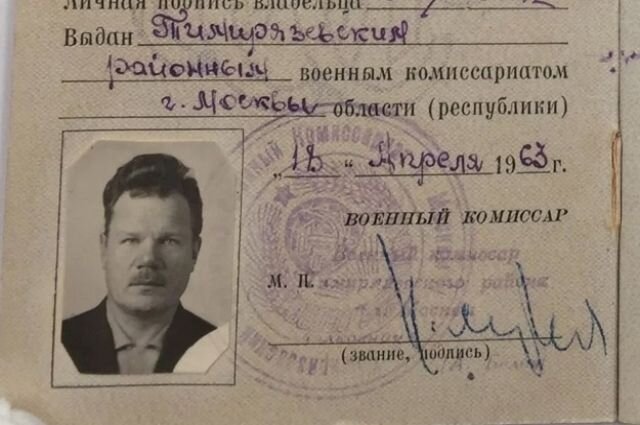 Личная подпись владельца
Выдан Тимирязевским
районным военным комиссариатом
г. Москвы области (республики)
„18 " Апреля 1963 г.
ВОЕННЫЙ КОМИССАР
Военный комиссар
Тимирязевского района
М. П.
г. Москвы
(звание, подпись)